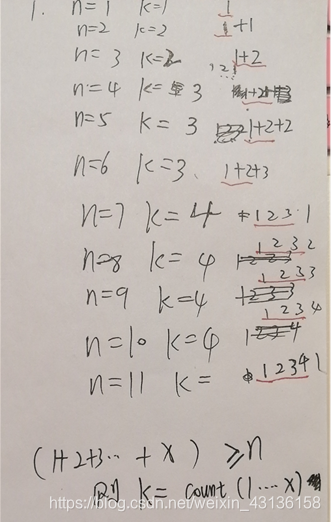 1. n=1 k=1 1
n=2 k=2 1+1
n=3 k=2 1+2
n=4 k=3
n=5 k=3 1+2+2
n=6 k=3 1+2+3
n=7 k=4 1 2 3 1
n=8 k=4 1 2 3 2
n=9 k=4 1 2 3 3
n=10 k=4 1 2 3 4
n=11 k= 1 2 3 4 1
(1+2+3.. + x) ≥n
则 k= count (1...x)
https://blog.csdn.net/weixin_43136158